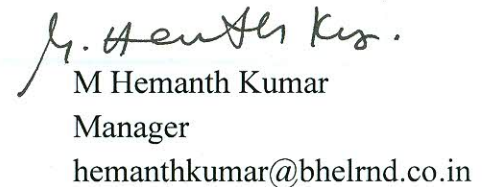 M. Hemanth Kr.
M Hemanth Kumar
Manager
hemanthkumar@bhelrnd.co.in